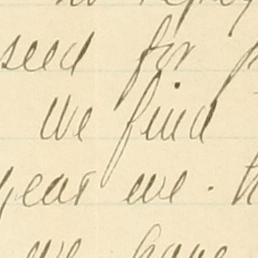 seed for
We find
year we.
we have